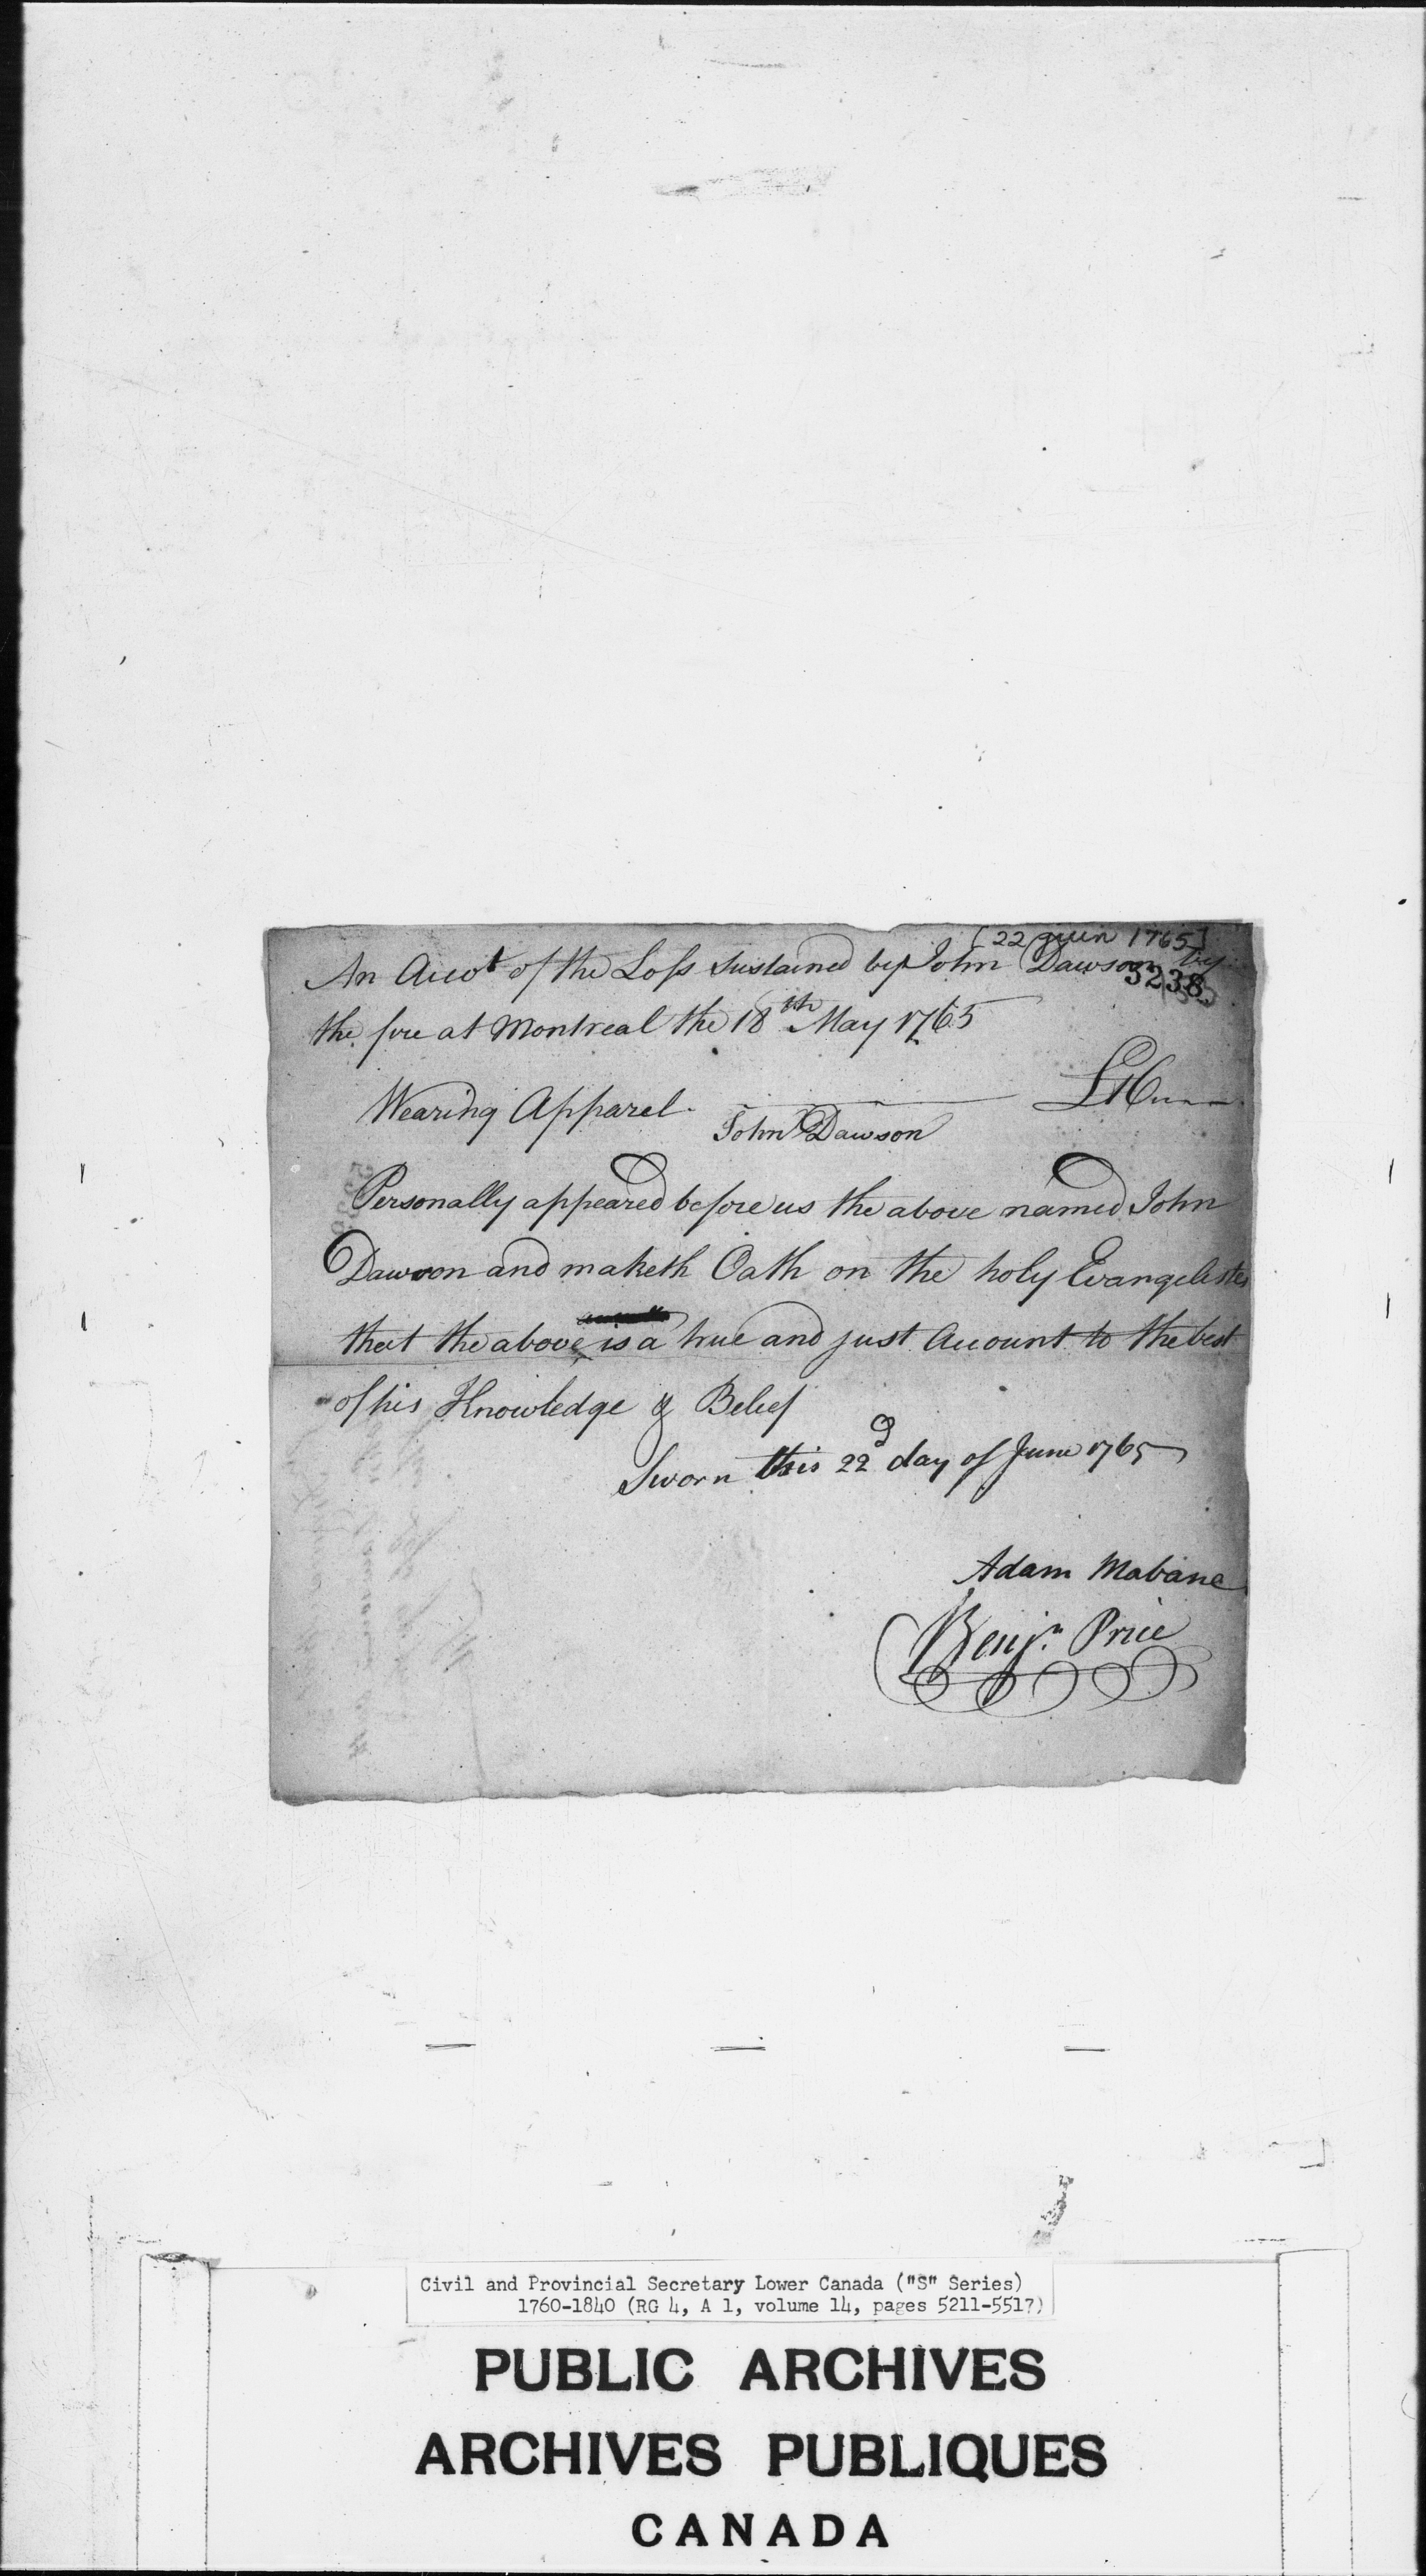 [22 juin 1765]
An Accot of the Loss sustained by John Dawson by
5238
the fire at Montreal the 18th May 1765
Wearing Apparel. £16 „ „ „
John Dawson
Personally appeared before us the above named John
Dawson and maketh Oath on the holy Evangelistes
that the above is a true and just Account to the best
of his Knowledge & Belief
Sworn this 22d day of June 1765
Adam Mabane
Benjn. Price
Civil and Provincial Secretary Lower Canada ("S" Series)
1760-1840 (RG 4, A 1, volume 14, pages 5211-5517)
PUBLIC ARCHIVES
ARCHIVES PUBLIQUES
CANADA